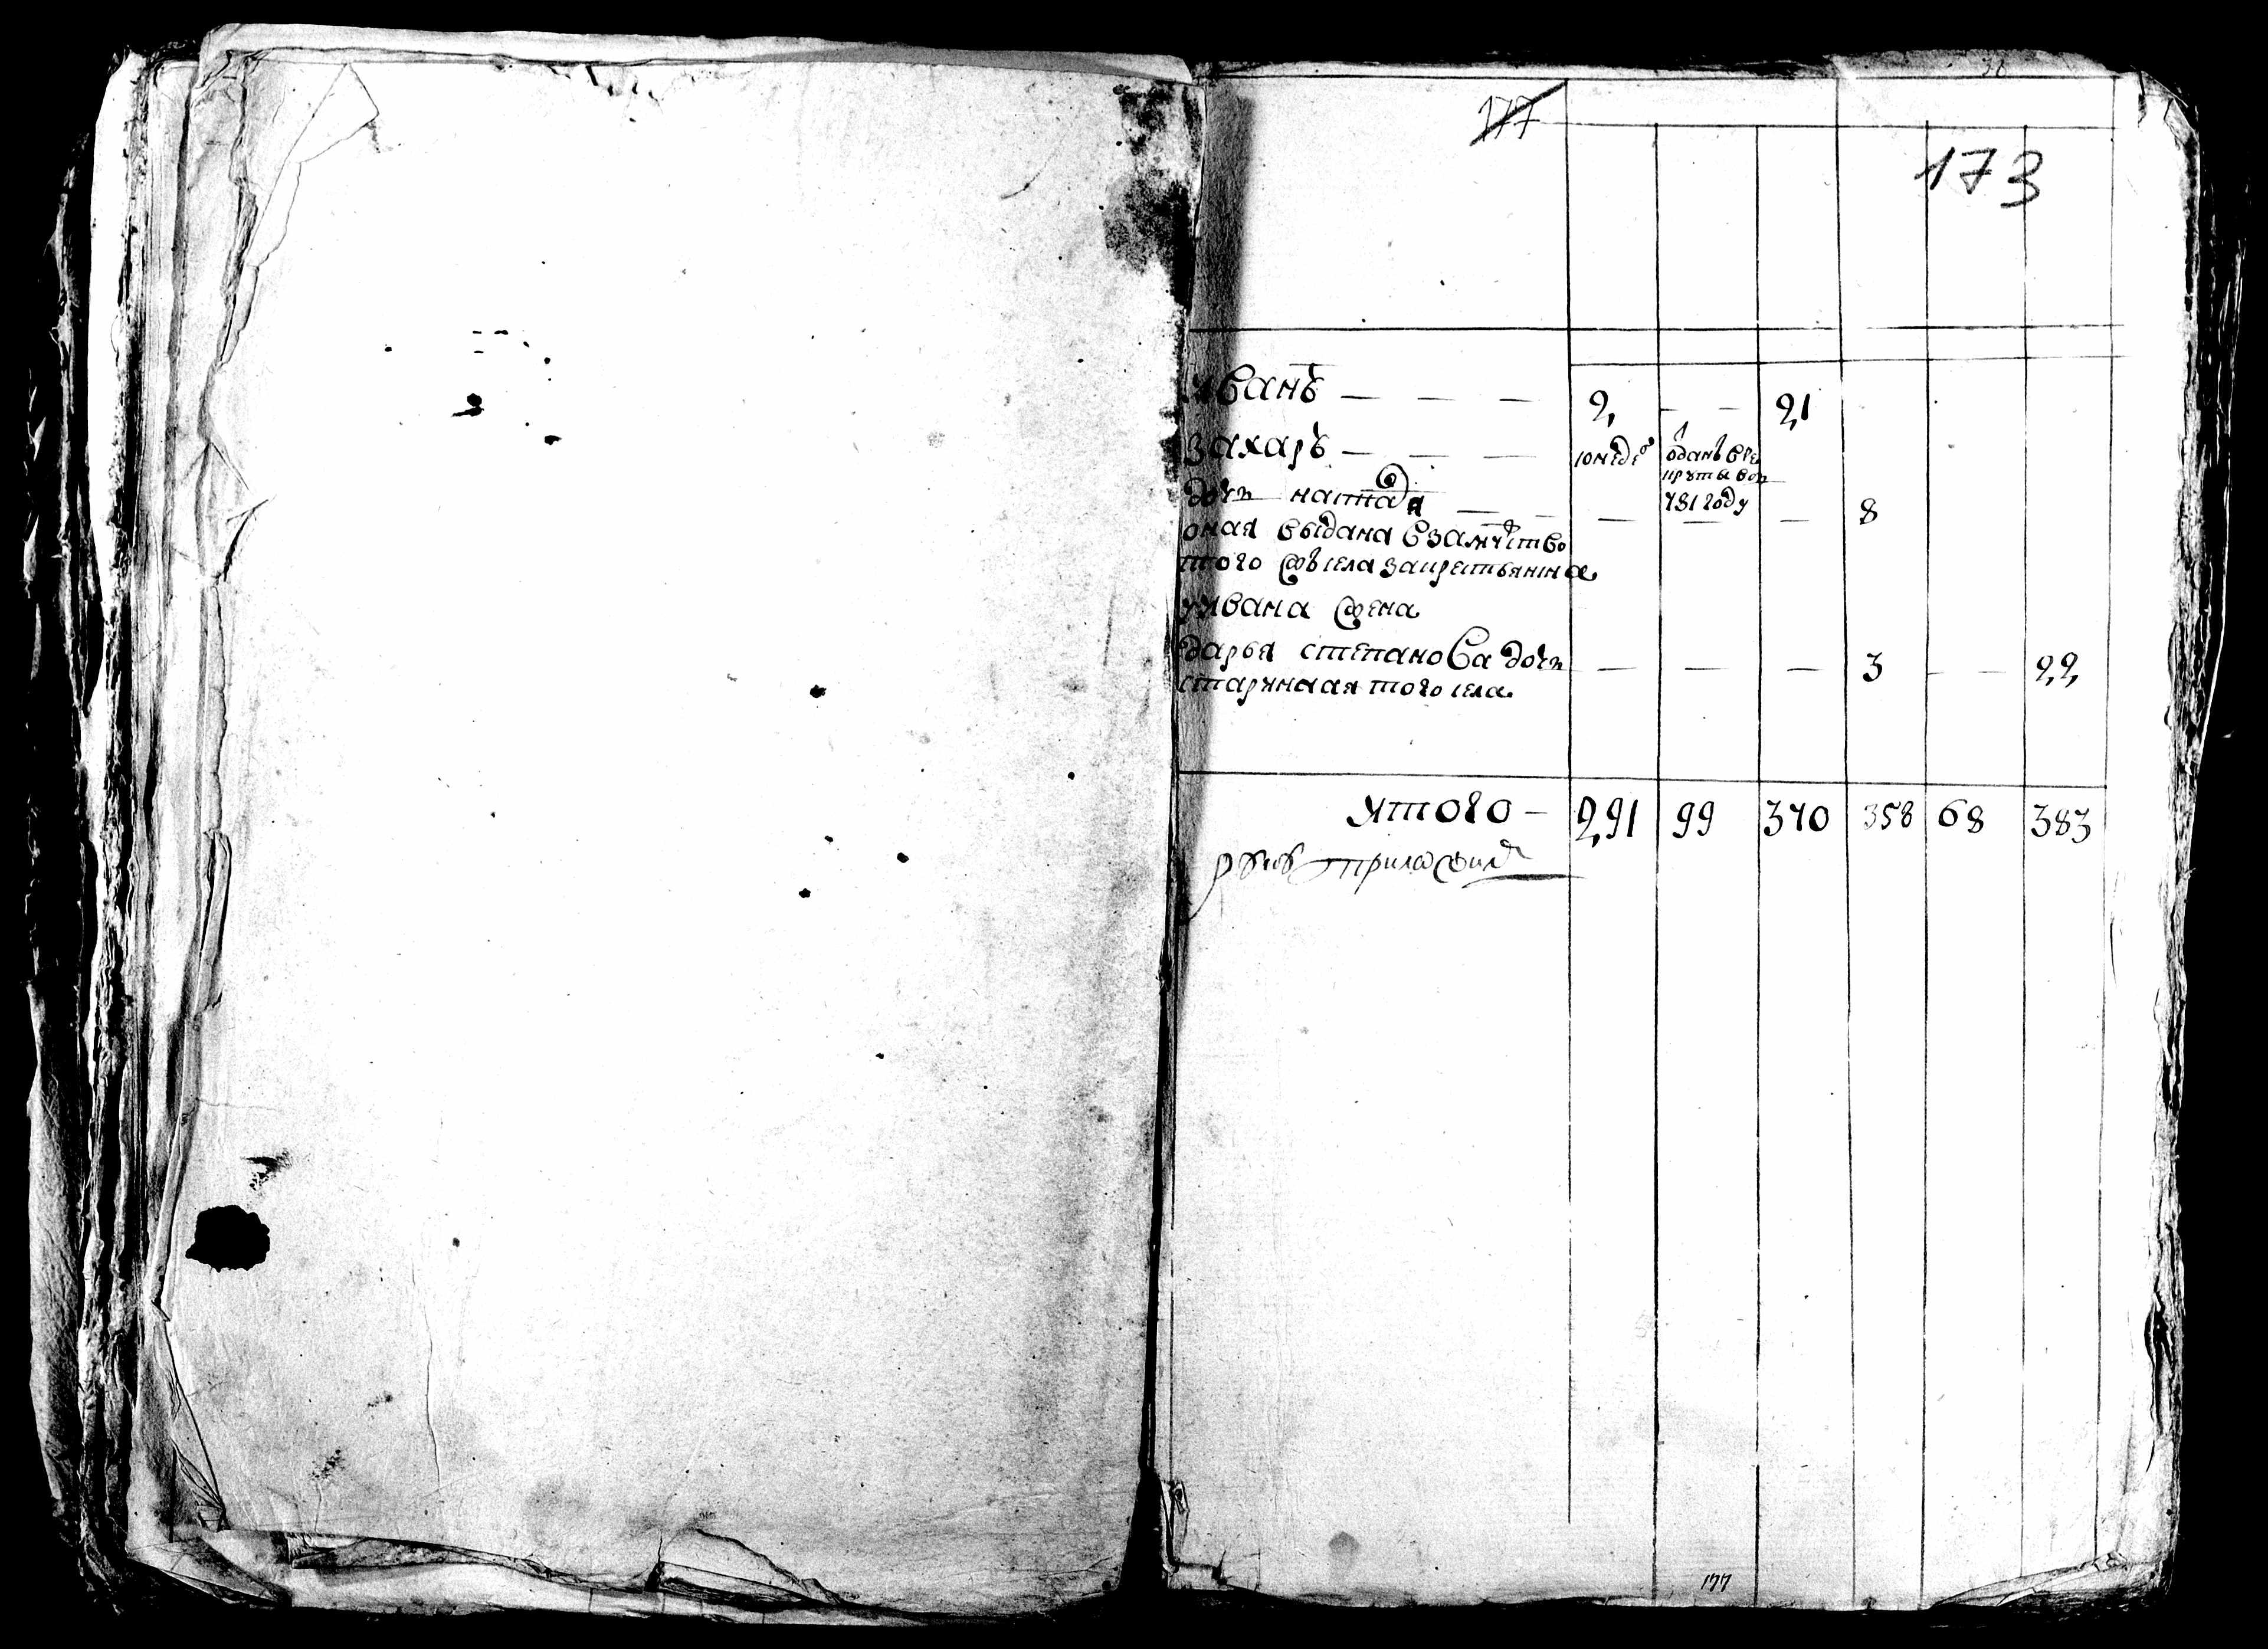 177
173
Иванъ — — — 2 — — 21
Захаръ — — — 10 неде
отданъ в ре
круты в
781 году
дочь — — 8
оная выдана взамужство
того ж села за крестьянина
у Ивана жена
дарья степанова дочь — — — 3 — — 22
старинная того села
Итого — 291 99 370 358 68 383
приложилъ
177